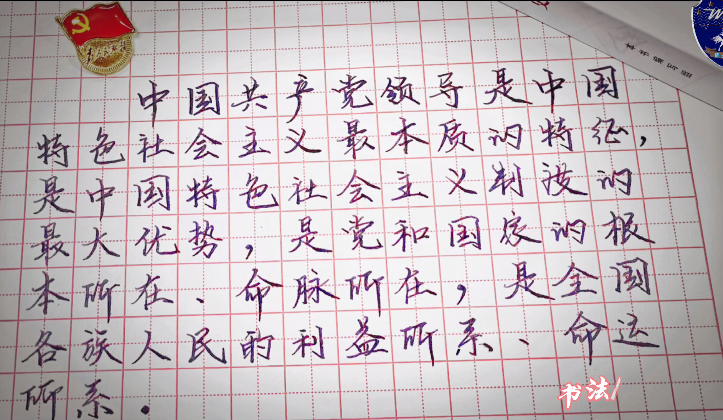 中国共产党领导是中国
特色社会主义最本质的特征，
是中国特色社会主义制度的
最大优势，是党和国家的根
本所在、命脉所在，是全国
各族人民的利益所系、命运
所系.
书法/